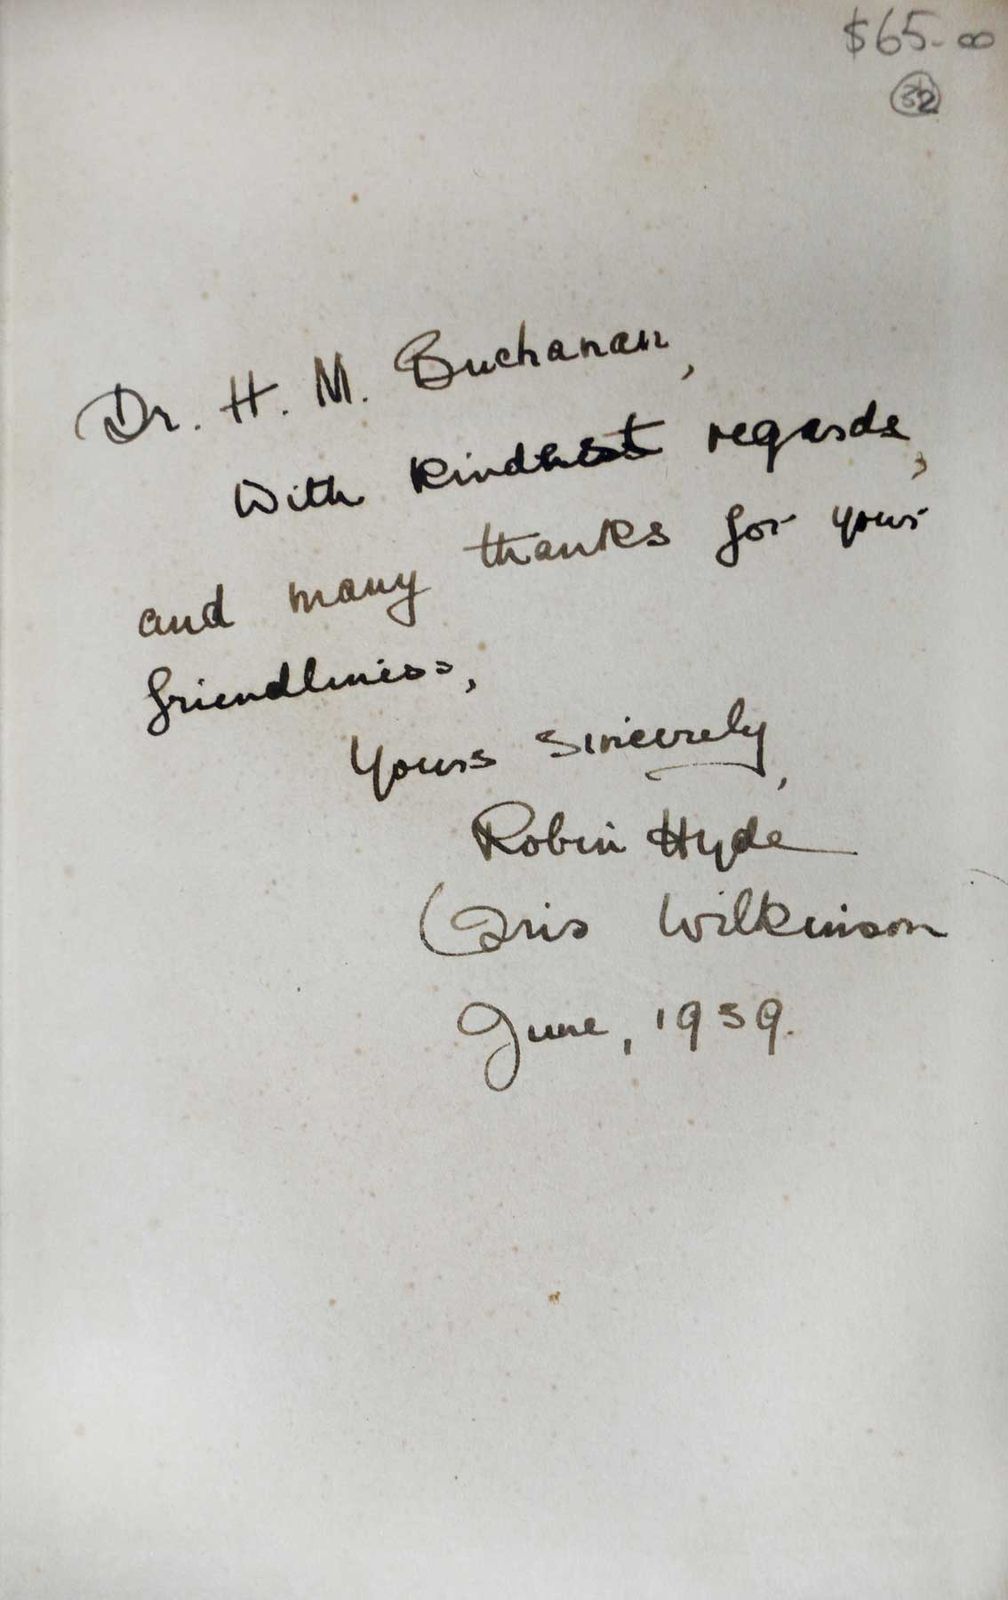 $65-00
32
Dr. H. M. Buchanan,
With kindest regards,
and many thanks for your
friendliness,
Yours sincerely,
Robin Hyde
(Iris Wilkinson
June, 1939.